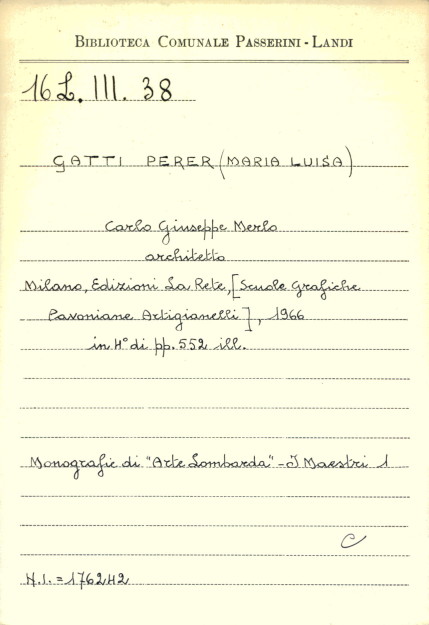 BIBLIOTECA COMUNALE PASSERINI - LANDI
16 L. III. 38
GATTI PERER (MARIA LUISA)
Carlo Giuseppe Merlo
architetto
Milano, Edizioni La Rete, [Scuole Grafiche
Pavoniane Artigianelli], 1966
in 4° di pp. 552 ill.
Monografie di "Arte Lombarda" - I Maestri 1
C
N.I. = 176242